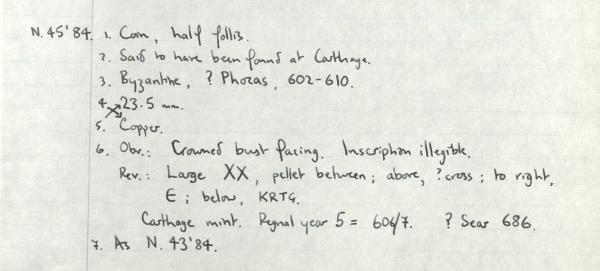 N.45'84. 1. Coin, half follis.
2. Said to have been found at Carthage.
3. Byzantine, ? Phocas, 602-610.
4. 23.5 mm.
5. Copper.
6. Obv.: Crowned bust facing. Inscription illegible.
Rev.: Large XX, pellet between; above, ?cross; to right,
E; below, KRTG.
Carthage mint. Regnal year 5 = 606/7. ? Sear 686.
7. As N.43'84.